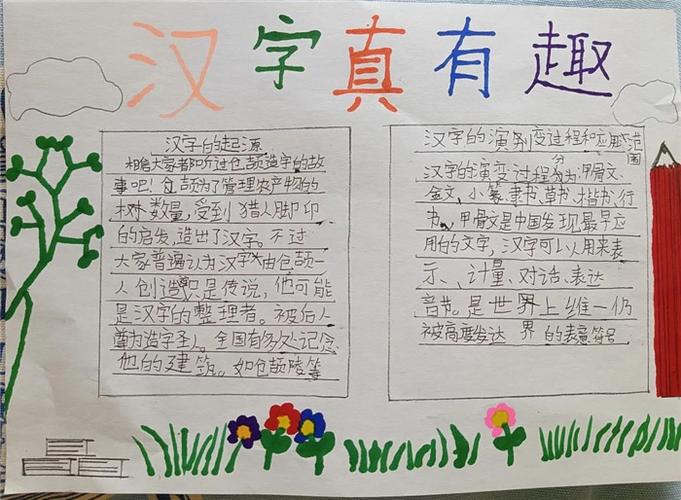 汉字真有趣
汉字的起源
相信大家都听过仓颉造字的故
事吧！仓颉为了管理农产物的
树数量，受到猎人脚印
的启发，造出了汉字。不过
大家普遍认为汉字由仓颉一
人创造只是传说，他可能
是汉字的整理者。被后人
尊为造字圣人。全国有多处记念
他的建筑。如仓颉陵等
汉字的演别变过程和应用范
围
汉字的演变过程分为：甲骨文、
金文，小篆、隶书、草书、楷书、行
书。甲骨文是中国发现最早应
用的文字，汉字可以用来表
示、计量、对话、表达
音节。是世界上维一仍
被高度发达 界的表意符号